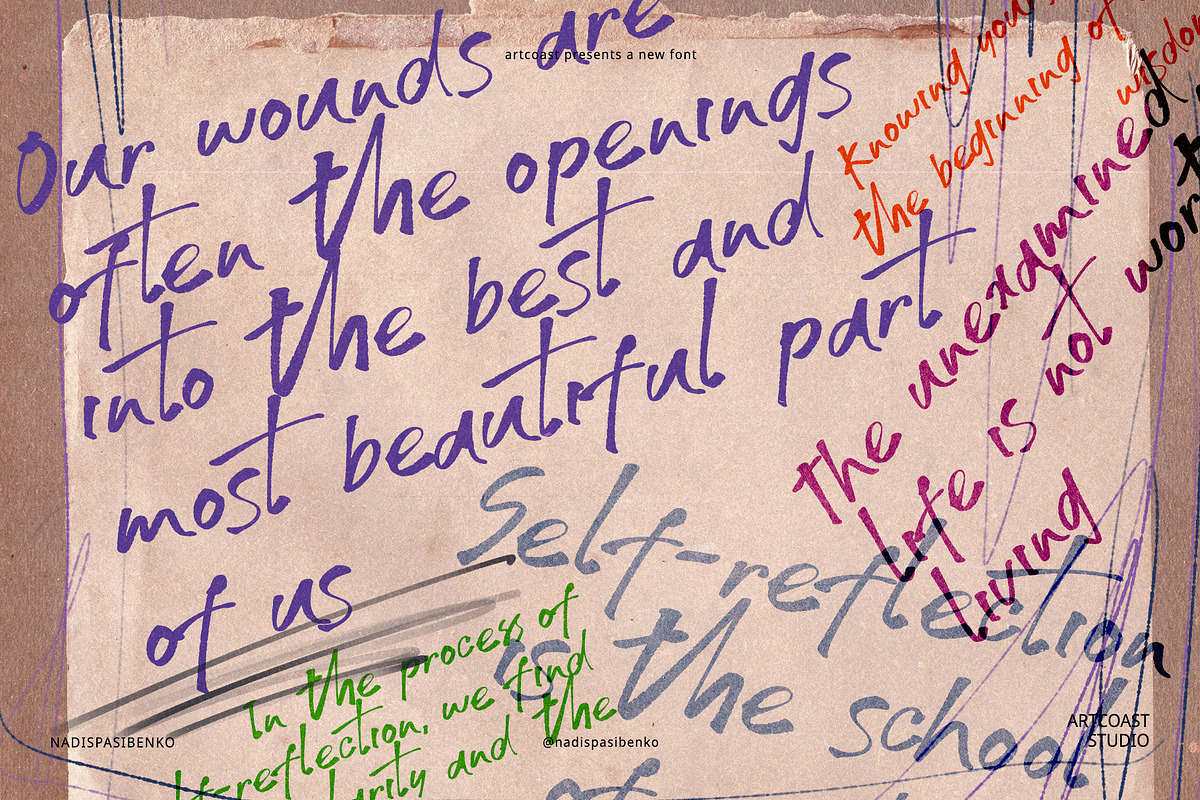 artcoast presents a new font
Our wounds are
often the openings
into the best and
most beautiful part
of us
Knowing
the beginning of
wisdom
the unexamined
Life is not
Living
Self-reflection
is the school
of
In the process of
self-reflection, we find
clarity and the
NADISPASIBENKO
@nadispasibenko
ARTCOAST
STUDIO